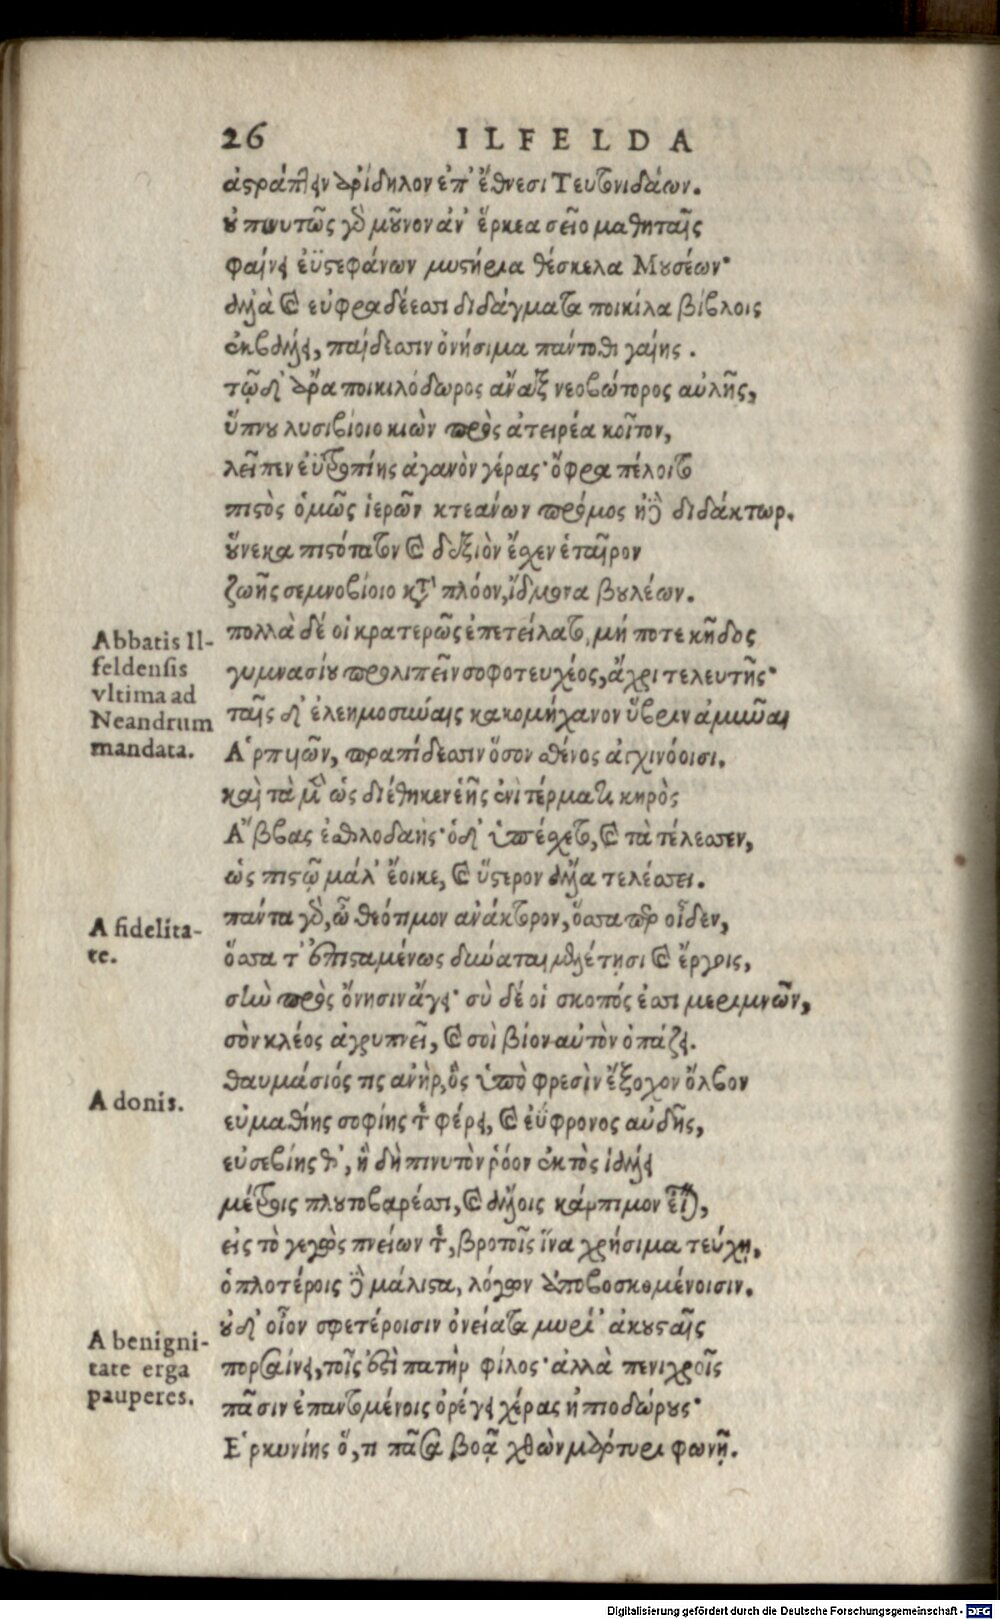 26 ILFELDA
ἀστράπτειν ἀρίδηλον ἐπ' ἔθνεσι Τευτονιδάων.
οὐ πινυτῶς γὰρ μοῦνον ἀν' ἕρκεα σεῖο μαθηταῖς
φαίνει ἐϋστεφάνων μυστήρια θέσκελα Μουσέων·
δηϊὰ καὶ εὐφραδέεσσι διδάγματα ποικίλα βίβλοις
ἐκβδηϊεῖ, παίδεσσιν ὀνήσιμα πάντοθι γαίης.
τῷ δ' ἄρα ποικιλόδωρος ἄναξ νεοβώτορος αὐλῆς,
ὕπνου λυσιβίοιο κιὼν πρὸς ἀτειρέα κοῖτον,
λεῖπεν ἐϋτροπίης ἀγανὸν γέρας· ὄφρα πέλοιτο
πιστὸς ὁμῶς ἱερῶν κτεάνων πρόμος ἠδὲ διδάκτωρ.
οὕνεκα πιστότατον καὶ δεξιὸν ἔσχεν ἑταῖρον
ζωῆς σεμνοβίοιο κατὰ πλόον, ἴδμονα βουλέων.
Abbatis Il-
feldensis
vltima ad
Neandrum
mandata.
πολλὰ δέ οἱ κρατερῶς ἐπετείλατο, μή ποτε κῆδος
γυμνασίου προλιπεῖν σοφοτευχέος, ἄχρι τελευτῆς·
ταῖς δ' ἐλεημοσύναις κακομήχανον ὕβριν ἀμῦναι
Ἁρπυιῶν, πραπίδεσσιν ὅσον σθένος ἀγχινόοισι.
καὶ τὰ μὲν ὡς διέθηκεν ἑῆς ἐνὶ τέρματι κηρὸς
Ἄββας ἐσθλοδαής· ὁ δ' ὑπέσχετο, καὶ τὰ τέλεσσεν,
ὡς πιστῷ μάλ' ἔοικε, καὶ ὕστερον δηϊα τελέσσει.
A fidelita-
te.
πάντα γὰρ, ὦ θεότιμον ἀνάκτορον, ὅσσα περ οἶδεν,
ὅσσα τ' ἐπισταμένως δύναται μελέτῃσι καὶ ἔργοις,
σὴν πρὸς ὄνησιν ἄγει· σὺ δέ οἱ σκοπός ἐσσι μεριμνῶν,
σὸν κλέος ἀγρυπνεῖ, καὶ σοὶ βίον αὐτὸν ὀπάζει.
A donis.
θαυμάσιός τις ἀνὴρ, ὃς ὑπὸ φρεσὶν ἔξοχον ὄλβον
εὐμαθίης σοφίης τε φέρει, καὶ ἐΰφρονος αὐδῆς,
εὐσεβίης θ', ἣ δὴ πινυτὸν ῥόον ἐκτὸς
μέτροις πλουτοβαρέσσι, καὶ κάρπιμον
εἰς τὸ γεγὸς πνείων τε, βροτοῖς ἵνα χρήσιμα τεύχῃ,
ὁπλοτέροις δὲ μάλιστα, λόγον ἀποβοσκομένοισιν.
A benigni-
tate erga
pauperes.
οὐδ' οἷον σφετέροισιν ὀνείατα μυρί' ἀκουσταῖς
πορσαίνει, τοῖς ἐστὶ πατὴρ φίλος· ἀλλὰ πενιχροῖς
πᾶσιν ἐπαντομένοις ὀρέγει χέρας ἠπιοδώρους·
Ἑρκυνίης ὅ, τι πᾶσα βοᾷ χθὼν μάρτυρι φωνῇ.
Digitalisierung gefördert durch die Deutsche Forschungsgemeinschaft - DFG